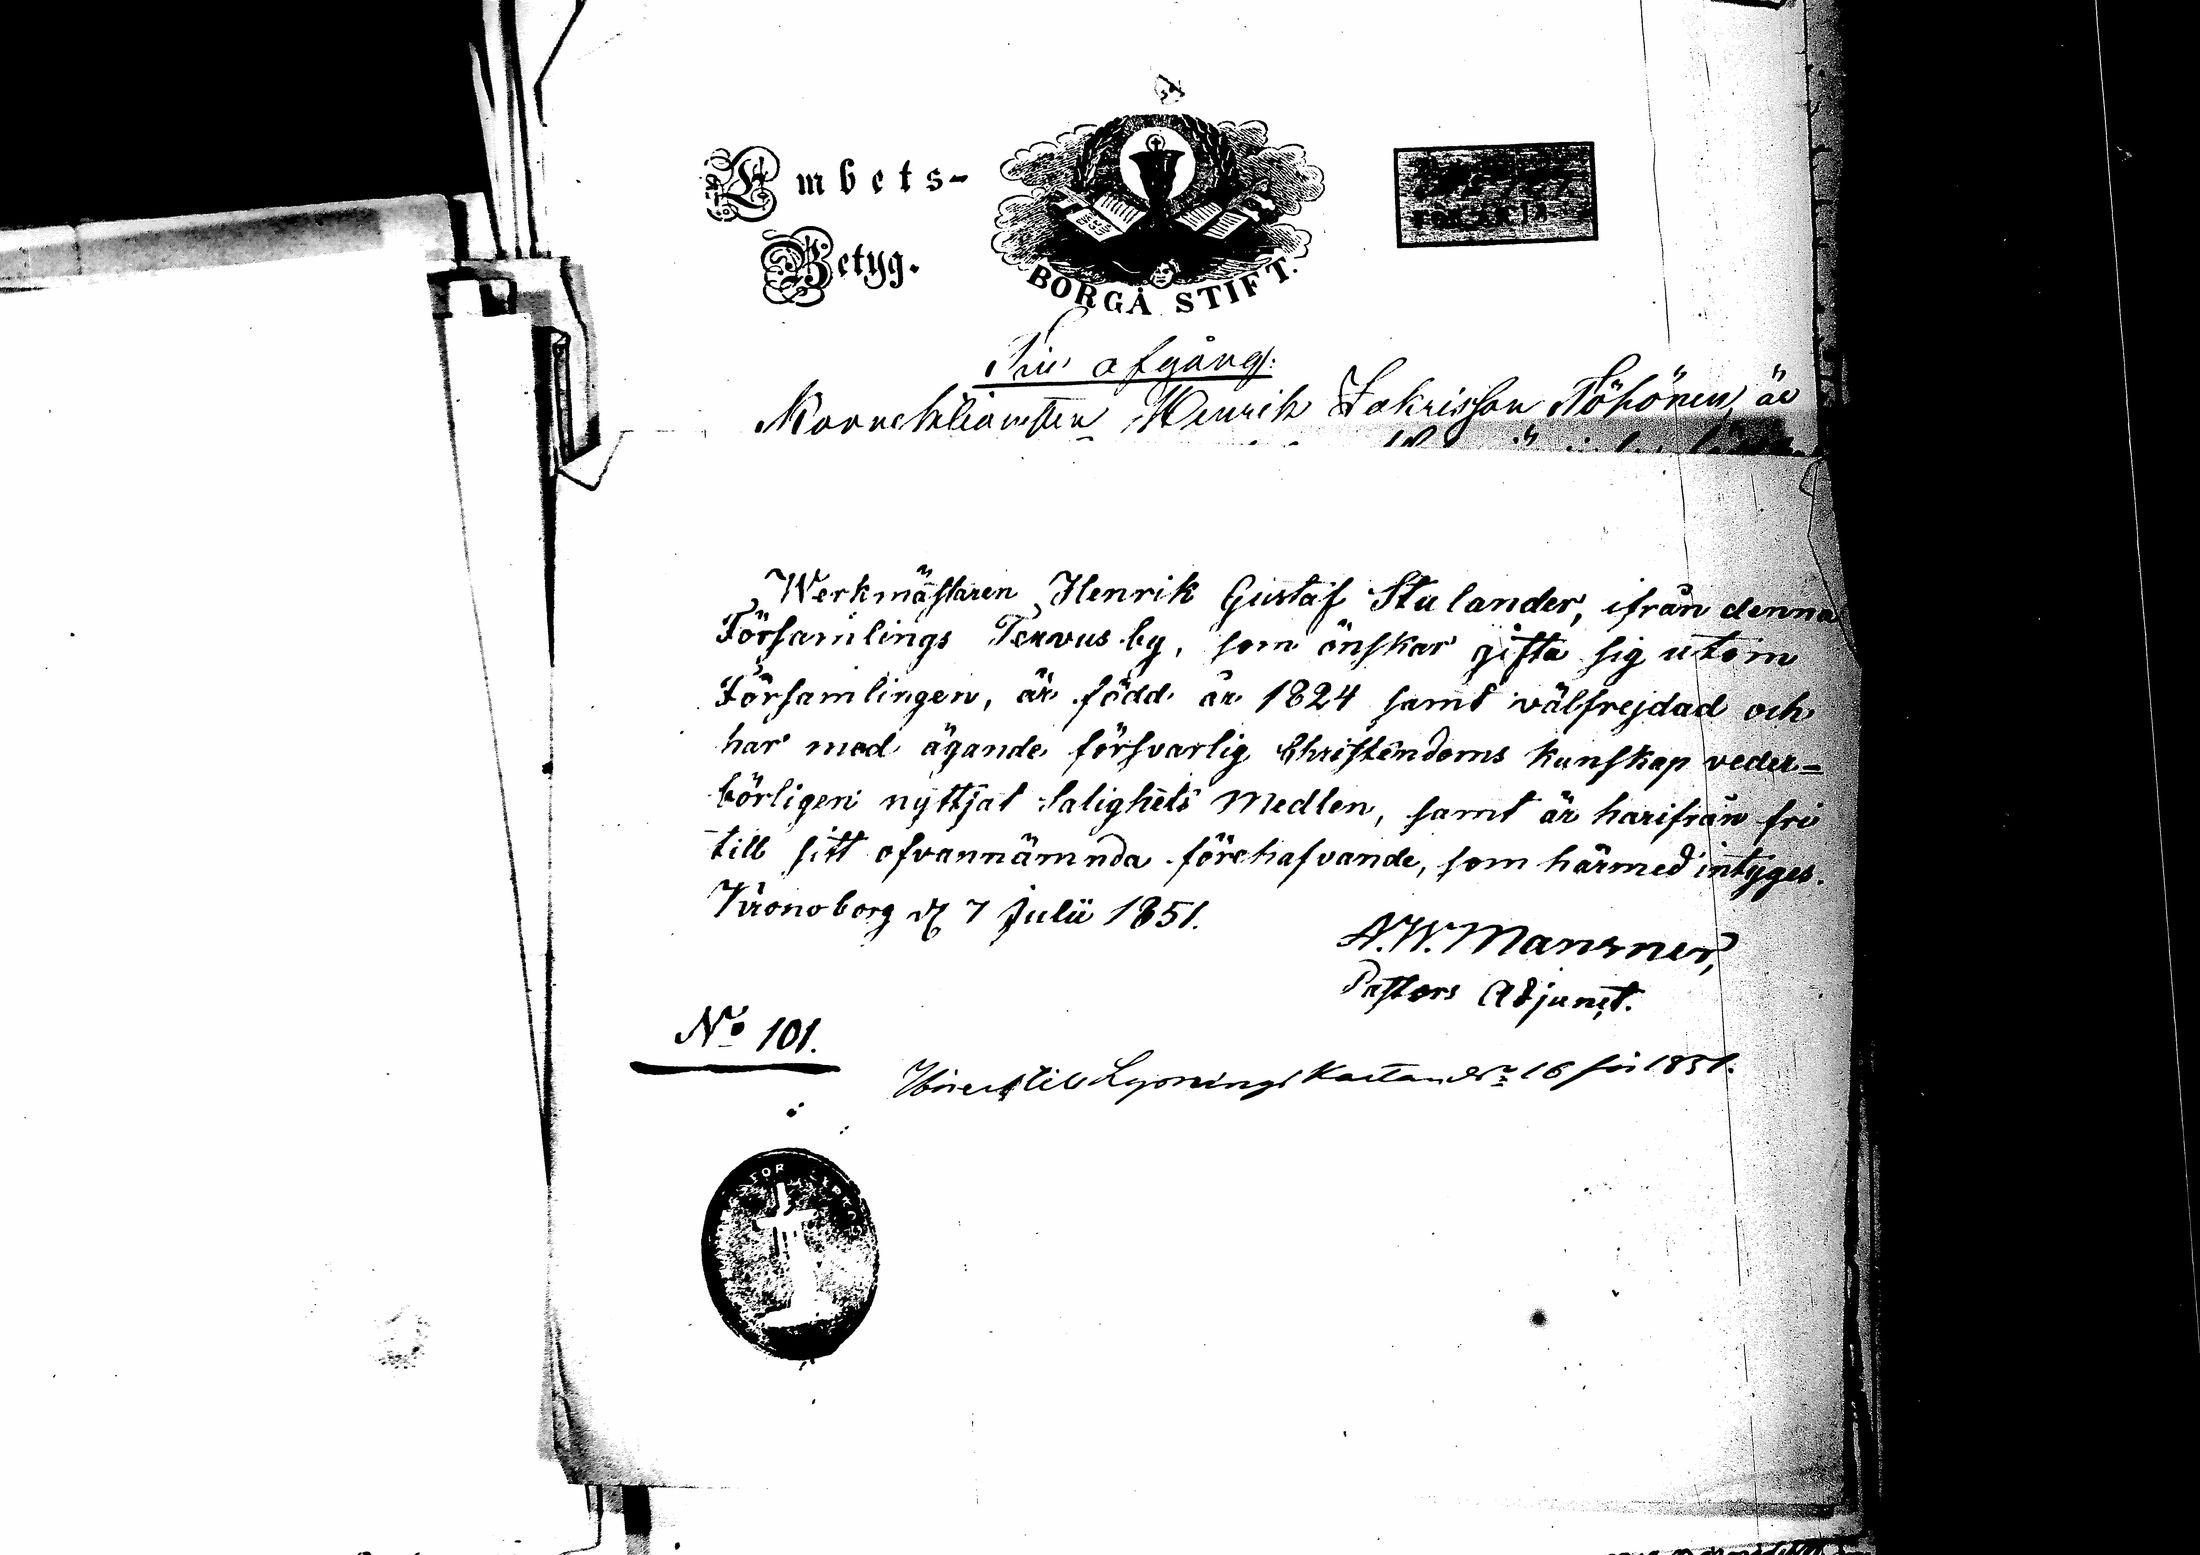 Embets-
Betyg.
BORGÅ STIFT.
Fri afgång.
Henrik Zakrisson är
Werkmästaren Henrik Gustaf Stulander, ifrån denna
Församlings Tervus by, som önskar gifta sig utom
Församlingen, är född år 1824 samt välfrejdad och
har med ägande försvarlig Christendoms kunskap veder-
börligen nyttjat Salighets Medlen, samt är härifrån fri
till sitt ofvannämnda förehafvande, som härmed intyges.
Kronoborg d 7 Julii 1851.
A.W. Mansner,
Pastors Adjunct.
No 101.
till Lysning 16 1851.
FOR